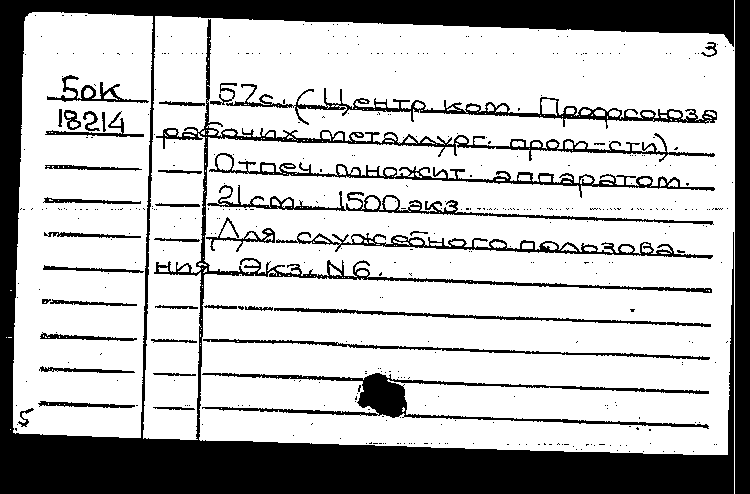 3
Бок
18214
57с. (Центр. ком. Профсоюза
рабочих металлург. пром-сти).
Отпеч. множит. аппаратом.
21 см. 1500 экз.
Для служебного пользова-
ния. Экз. N 6.
5